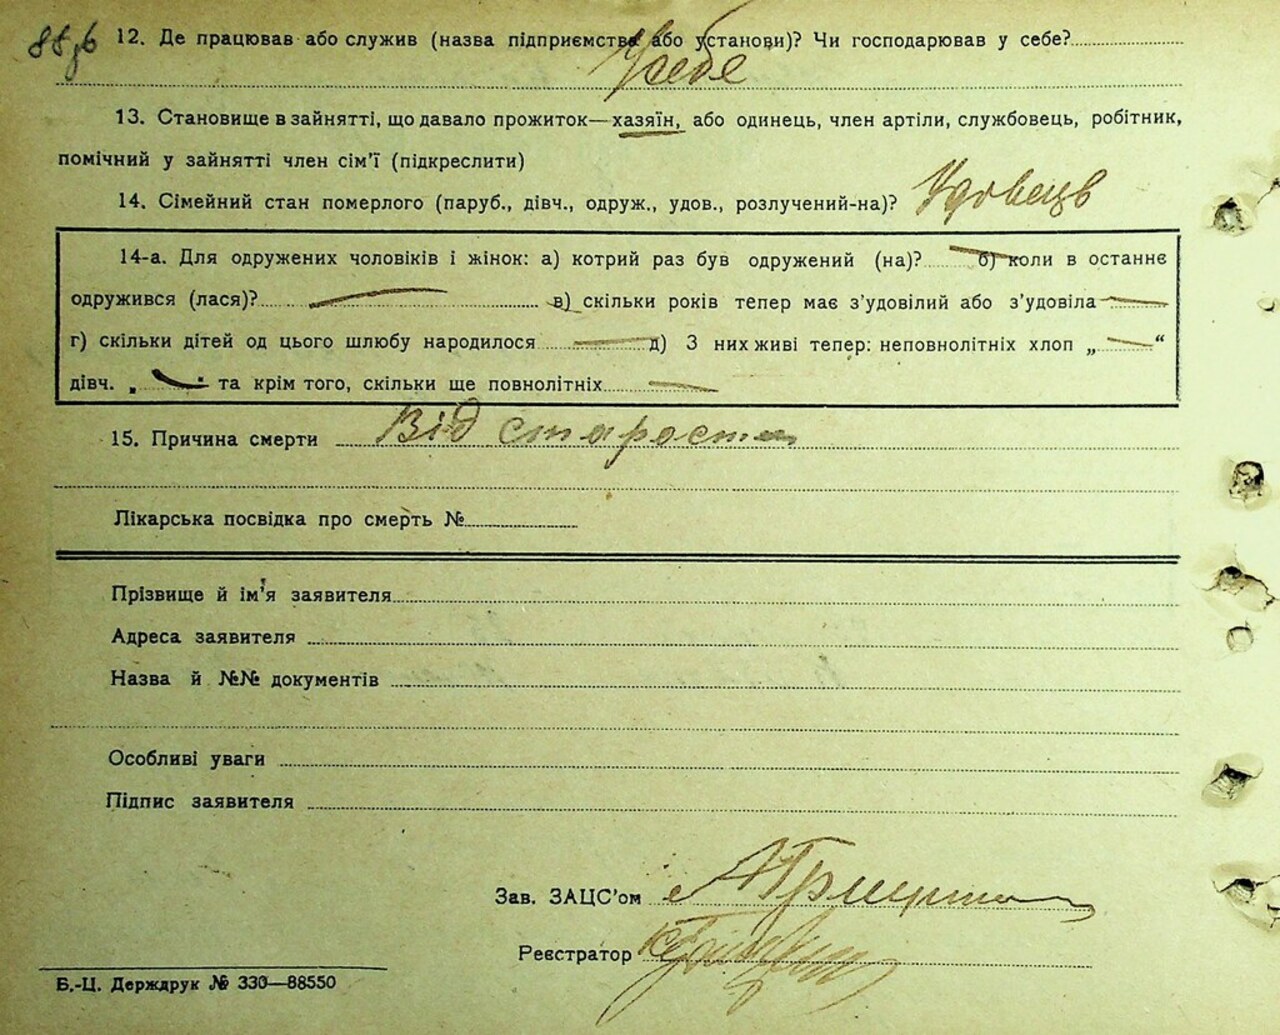 88зв 12. Де працював або служив (назва підприємства або установи)? Чи господарював у себе?
У себе
13. Становище в зайнятті, що давало прожиток—хазяїн, або одинець, член артіли, службовець, робітник,
помічний у зайнятті член сім'ї (підкреслити)
14. Сімейний стан померлого (паруб., дівч., одруж., удов., розлучений-на)? Удовець
14-а. Для одружених чоловіків і жінок: а) котрий раз був одружений (на)? — б) коли в останнє
одружився (лася)? — в) скільки років тепер має з'удовілий або з'удовіла —
г) скільки дітей од цього шлюбу народилося — д) З них живі тепер: неповнолітніх хлоп „ — “
дівч. „ — " та крім того, скільки ще повнолітніх —
15. Причина смерти Від старости
Лікарська посвідка про смерть №
Прізвище й ім'я заявителя
Адреса заявителя
Назва й №№ документів
Особливі уваги
Підпис заявителя
Зав. ЗАЦС'ом
Реєстратор
Б.-Ц. Держдрук № 330—88550